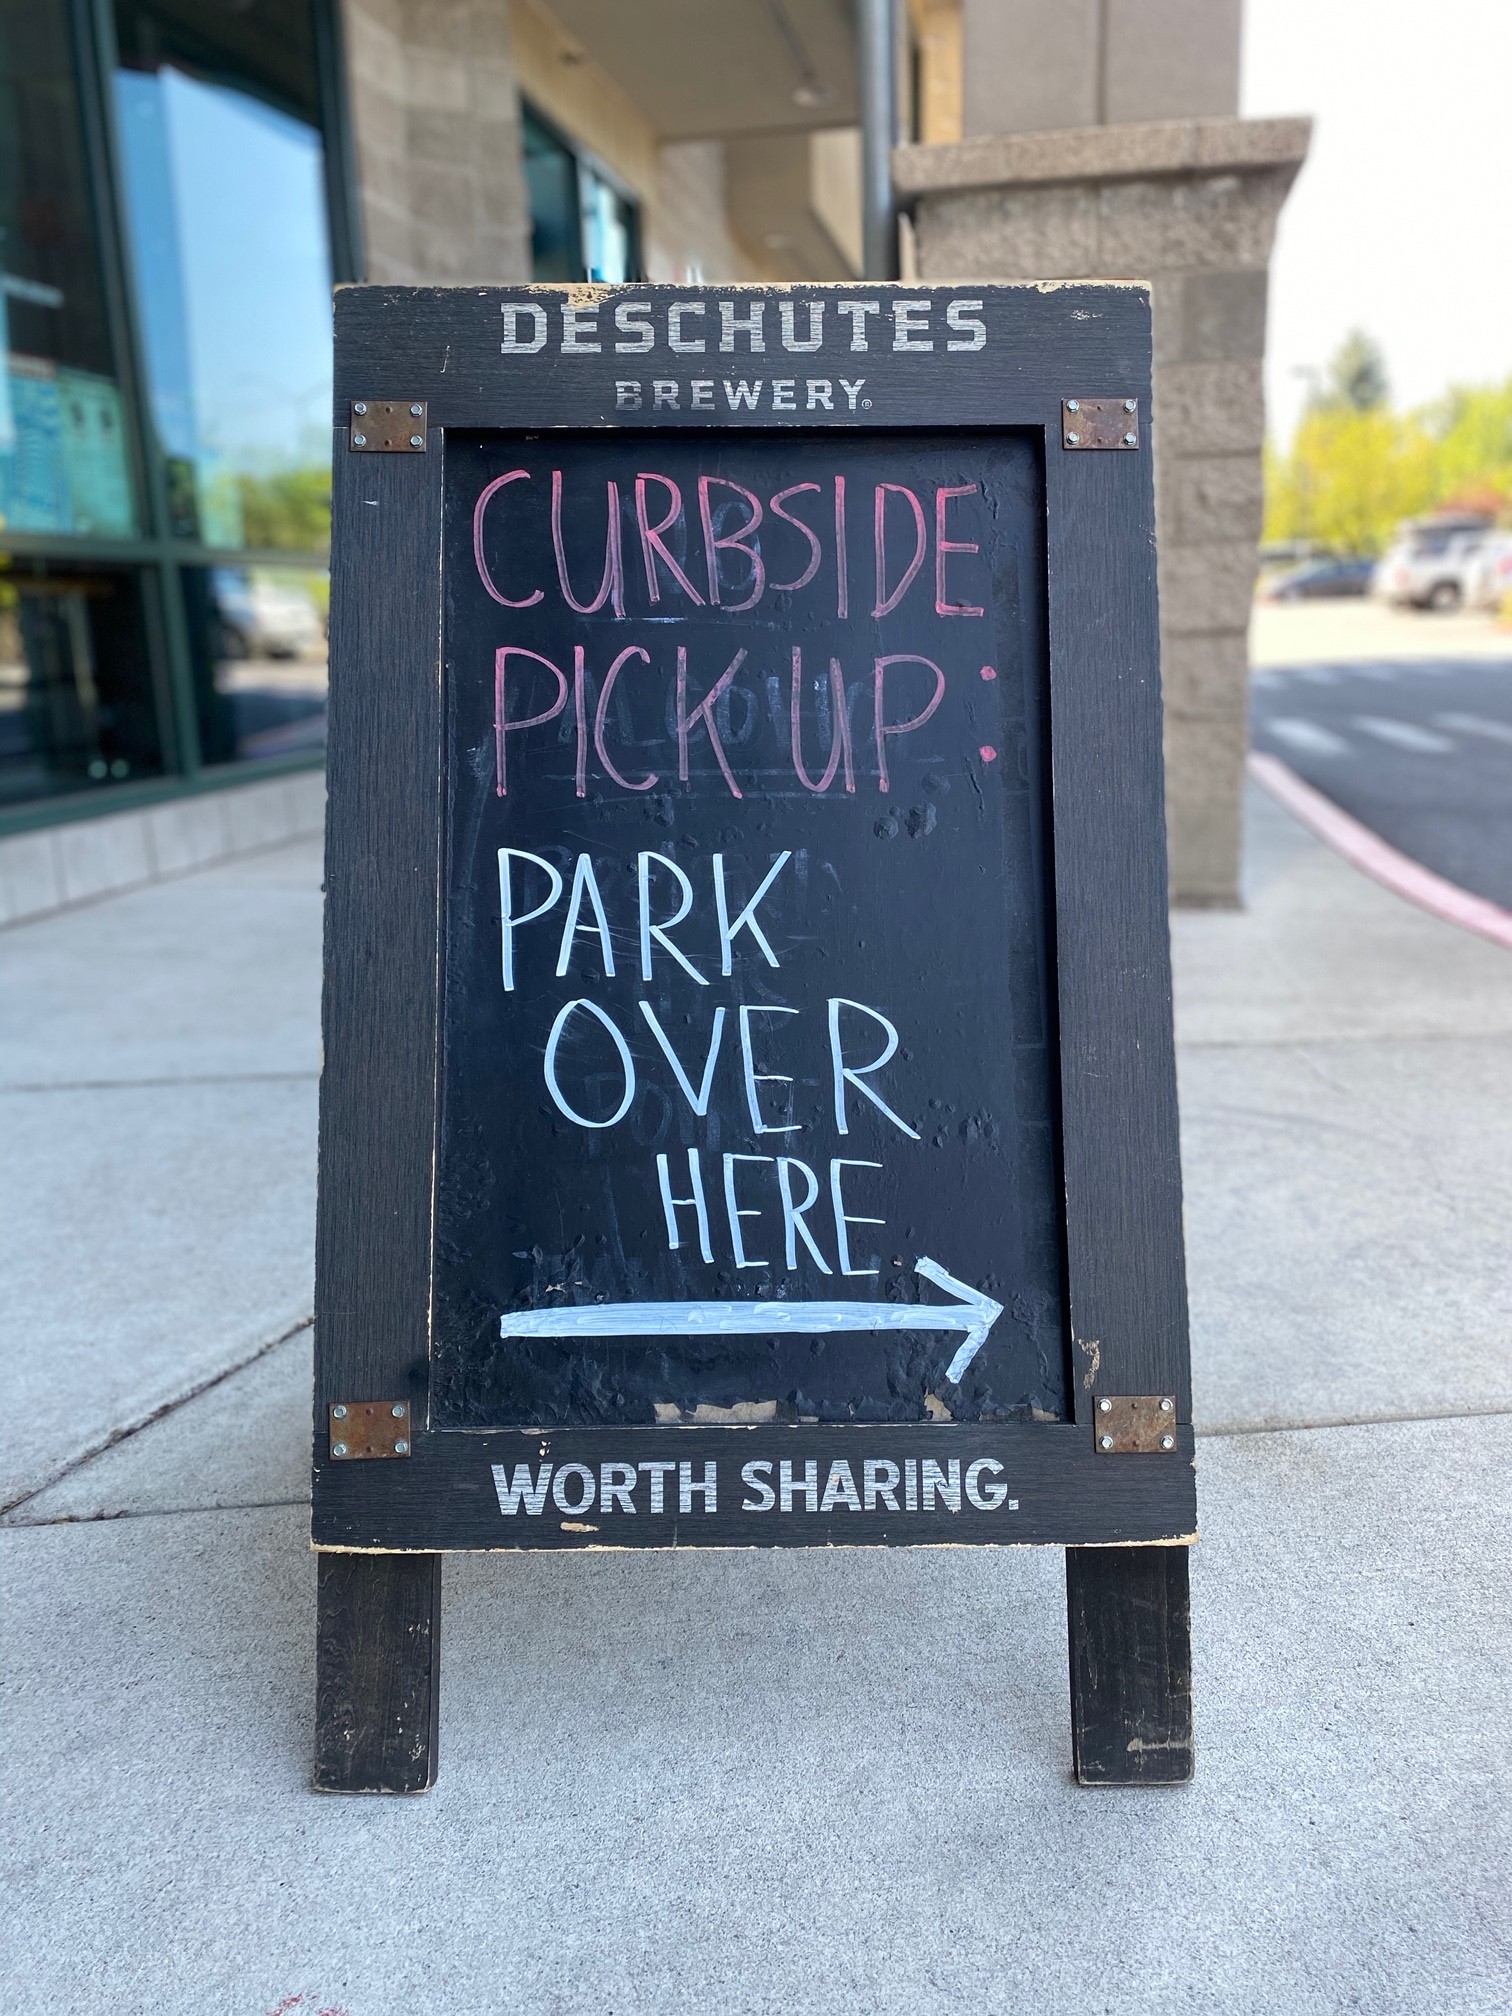 DESCHUTES
BREWERY®
CURBSIDE
PICK UP:
PARK
OVER
HERE
WORTH SHARING.